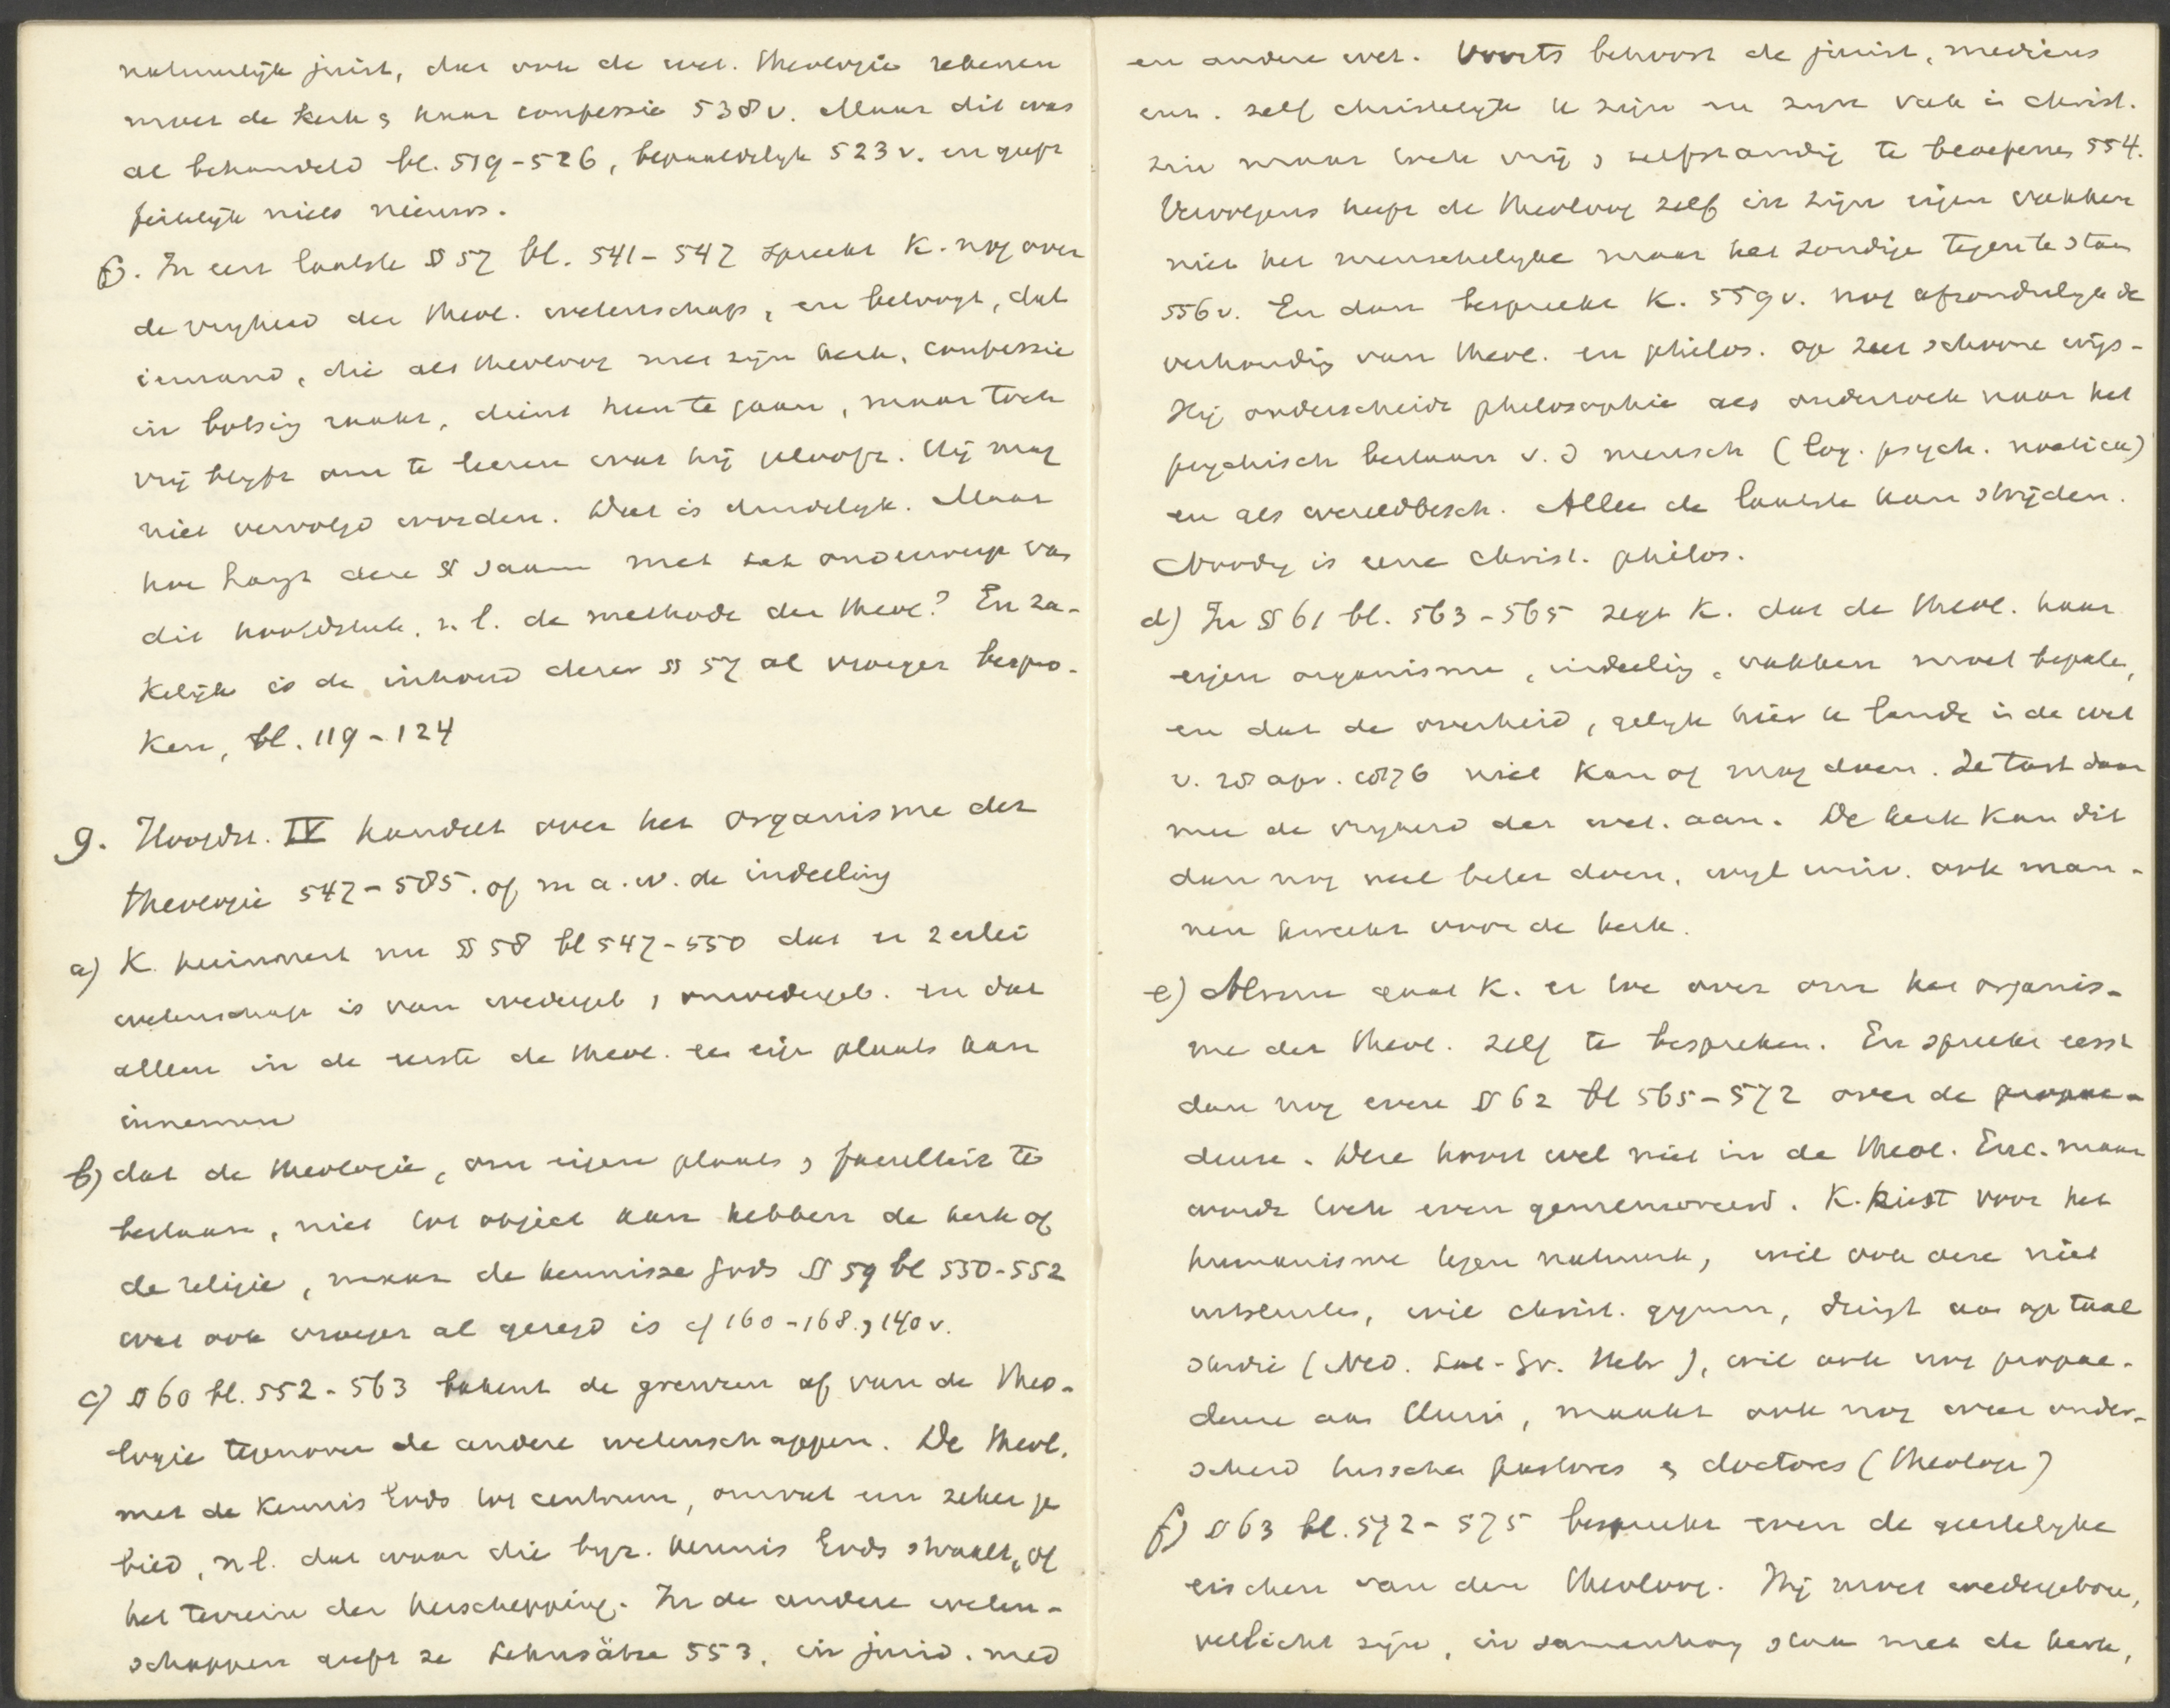 natuurlijk juist, dat ook de wet. theologie rekenen
moet de kerk & haar confessie 538v. Maar dit was
al behandeld bl. 519-526, bepaaldelijk 523v. en geeft
feitelijk niets nieuws.
f). In een laatste § 57 bl. 541-547 spreekt K. nog over
de vrijheid der theol. wetenschap, en betoogt, dat
iemand, die als theoloog met zijn kerk, confessie
in botsing raakt, dient heen te gaan, maar toch
vrij blijft om te leeren wat hij gelooft. Hij mag
niet vervolgd worden. Dat is duidelijk. Maar
hoe hangt deze § saam met het onderwerp van
dit hoofdstuk, n.l. de methode der theol? En za-
kelijk is de inhoud dezer § 57 al vroeger bespro-
ken, bl. 119-124
9. Hoofdst. IV handelt over het organisme der
theologie 547-585. of m.a.w. de indeeling
a) K. herinnert nu § 58 bl 547-550 dat er 2erlei
wetenschap is van wedergeb, onwedergeb. en dat
alleen in de eerste de theol. een eigen plaats kan
innemen
b) dat de theologie, om eigen plaats, faculteit te
bestaan, niet tot object kan hebben de kerk of
de religie, maar de kennisse Gods § 59 bl 550-552
wat ook vroeger al gezegd is cf 160-168, 140v.
c) § 60 bl. 552-563 bakent de grenzen af van de theo-
logie tegenover de andere wetenschappen. De theol.
met de kennis Gods tot centrum, omvat een zeker ge
bied, nl. dat waar die byz. kennis Gods straalt, of
het terrein der herschepping. In de andere weten-
schappen geeft ze Lehnsätze 553, in jurid. med
en andere wet. Voorts behoort de jurist, medicus
enz. zelf christelijk te zijn en zijn vak in christ.
zin maar toch vrij, zelfstandig te beoefenen 554.
Vervolgens heeft de theoloog zelf in zijn eigen vakken
niet het menschelijke maar het zondige tegen te staan
556v. En dan bespreekt K. 559v. nog afzonderlijk de
verhouding van theol. en philos. op zeer schoone wijs-
Hij onderscheidt philosophie als onderzoek naar het
psychisch bestaan v. d mensch (log. psych. noetica)
en als wereldbesch. Alleen de laatste kan strijden.
Noodig is eene christ. philos.
d) In § 61 bl. 563-565 zegt K. dat de theol. haar
eigen organisme, indeeling, vakken moet bepalen,
en dat de overheid, gelijk hier te lande in de wet
v. 28 apr. 1876 niet kan of mag doen. Ze tast daar
mee de vrijheid der wet. aan. De kerk kan dit
dan nog veel beter doen, wijl univ. ook man-
nen kweekt voor de kerk.
e) Alsnu gaat K. er toe over om het organis-
me der theol. zelf te bespreken. En spreekt eerst
dan nog even § 62 bl 565-572 over de propae-
deuse. Deze hoort wel niet in de theol. Enc. maar
wordt toch even gememoreerd. K. kiest voor het
humanisme tegen natuurk, wil ook deze niet
uitsluiten, wil christ. gymn, dringt aan op taal
studie (Ned. Lat-Gr. Hebr), wil ook nog propae-
deuse aan Univ, maakt ook nog weer onder-
scheid tusschen pastores & doctores (theologi)
f) § 63 bl. 572-575 bespreekt even de geestelijke
eischen van den theoloog. Hij moet wedergeboren,
verlicht zijn, in samenhang staan met de kerk,